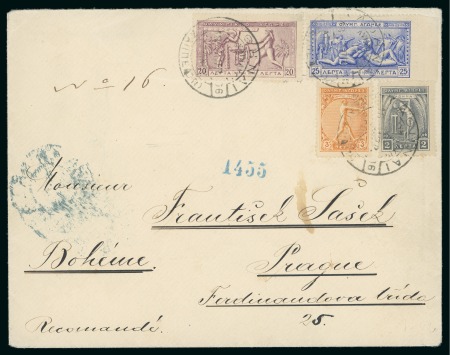 20 ΛΕΠΤΑ 20
25 ΛΕΠΤΑ 25
3
2 ΛΕΠΤΑ 2
No 16.
1455
Monsieur
František Sašek
Bohême.
Prague
Ferdinandova třída
25.
Recomandé.